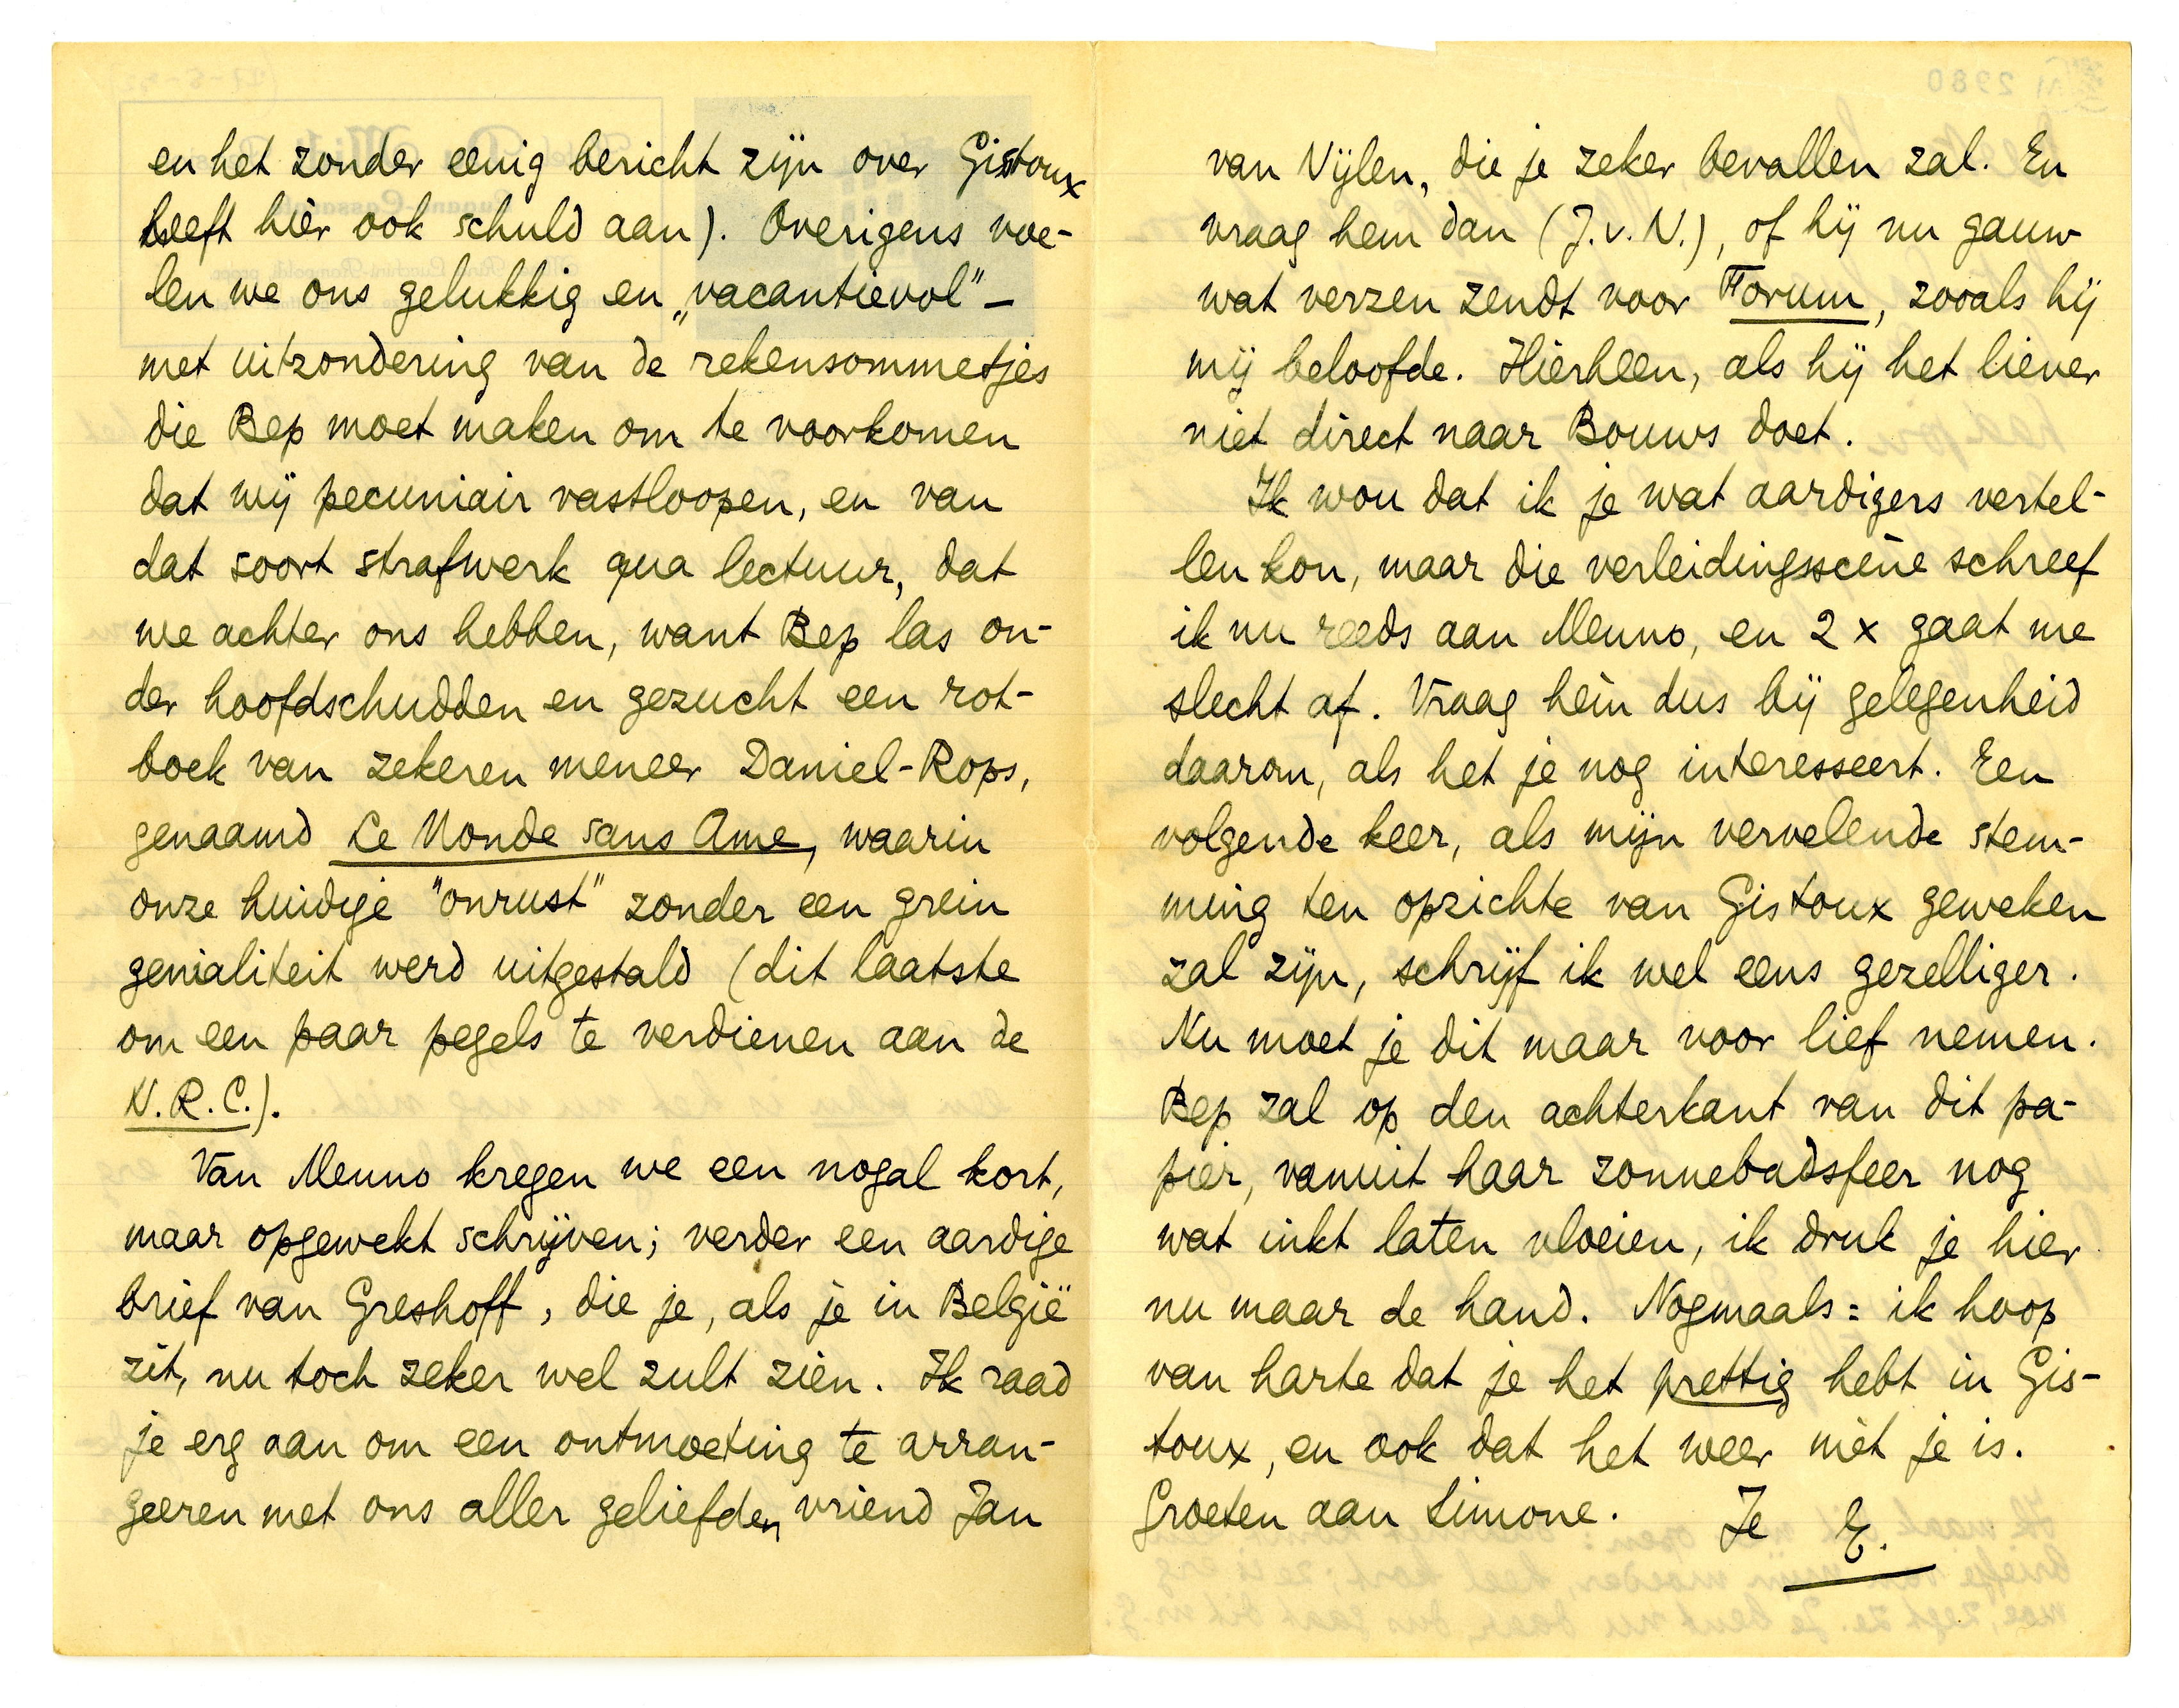 en het zonder eenig bericht zijn over Gistoux
heeft hier ook schuld aan). Overigens voe-
len we ons gelukkig en „vacantievol” —
met uitzondering van de rekensommetjes
die Bep moet maken om te voorkomen
dat wij pecuniair vastloopen, en van
dat soort strafwerk qua lectuur, dat
we achter ons hebben, want Bep las on-
der hoofdschudden en gezucht een rot-
boek van zekeren meneer Daniel-Rops,
genaamd Le Monde sans Ame, waarin
onze huidige "onrust" zonder een grein
genialiteit werd uitgestald (dit laatste
om een paar pegels te verdienen aan de
N.R.C.).
Van Menno kregen we een nogal kort,
maar opgewekt schrijven; verder een aardige
brief van Greshoff, die je, als je in België
zit, nu toch zeker wel zult zien. Ik raad
je erg aan om een ontmoeting te arran-
geeren met ons aller geliefden vriend Jan
van Nijlen, die je zeker bevallen zal. En
vraag hem dan (J.v.N.), of hij nu gauw
wat verzen zendt voor Forum, zooals hij
mij beloofde. Hierheen, als hij het liever
niet direct naar Bouws doet.
Ik wou dat ik je wat aardigers vertel-
len kon, maar die verleidingsscène schreef
ik nu reeds aan Menno, en 2 x gaat me
slecht af. Vraag hèm dus bij gelegenheid
daarom, als het je nog interesseert. Een
volgende keer, als mijn vervelende stem-
ming ten opzichte van Gistoux geweken
zal zijn, schrijf ik wel eens gezelliger.
Nu moet je dit maar voor lief nemen.
Bep zal op den achterkant van dit pa-
pier, vanuit haar zonnebadsfeer nog
wat inkt laten vloeien, ik druk je hier
nu maar de hand. Nogmaals: ik hoop
van harte dat je het prettig hebt in Gis-
toux, en ook dat het weer mèt je is.
Groeten aan Simone. Je E.